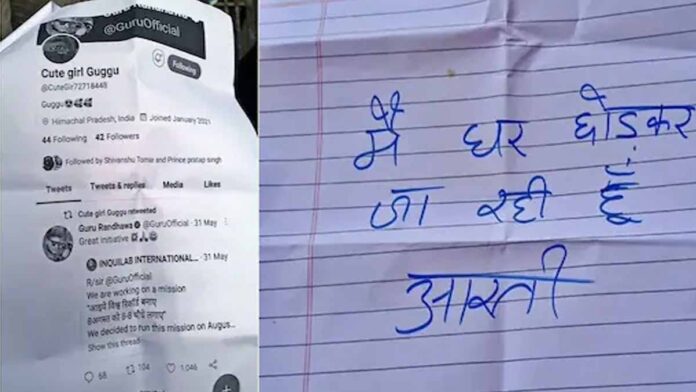 @GuruOfficial
Following
Cute girl Guggu
@CuteGir72718448
Guggu
Himachal Pradesh, India Joined January 2021
44 Following 42 Followers
Followed by Shivanshu Tomar and Prince pratap singh
Tweets Tweets & replies Media Likes
Cute girl Guggu retweeted
Guru Randhawa @GuruOfficial · 31 May
Great initiative
INQUILAB INTERNATIONAL... · 31 May
R/sir @GuruOfficial
We are working on a mission
"आइये विश्व रिकॉर्ड बनाए
8अगस्त को 8-8 पौधे लगाए"
We decided to run this mission on Augus...
Show this thread
68 104 1,046
मै घर छोडकर
जा रही हूँ
आरती